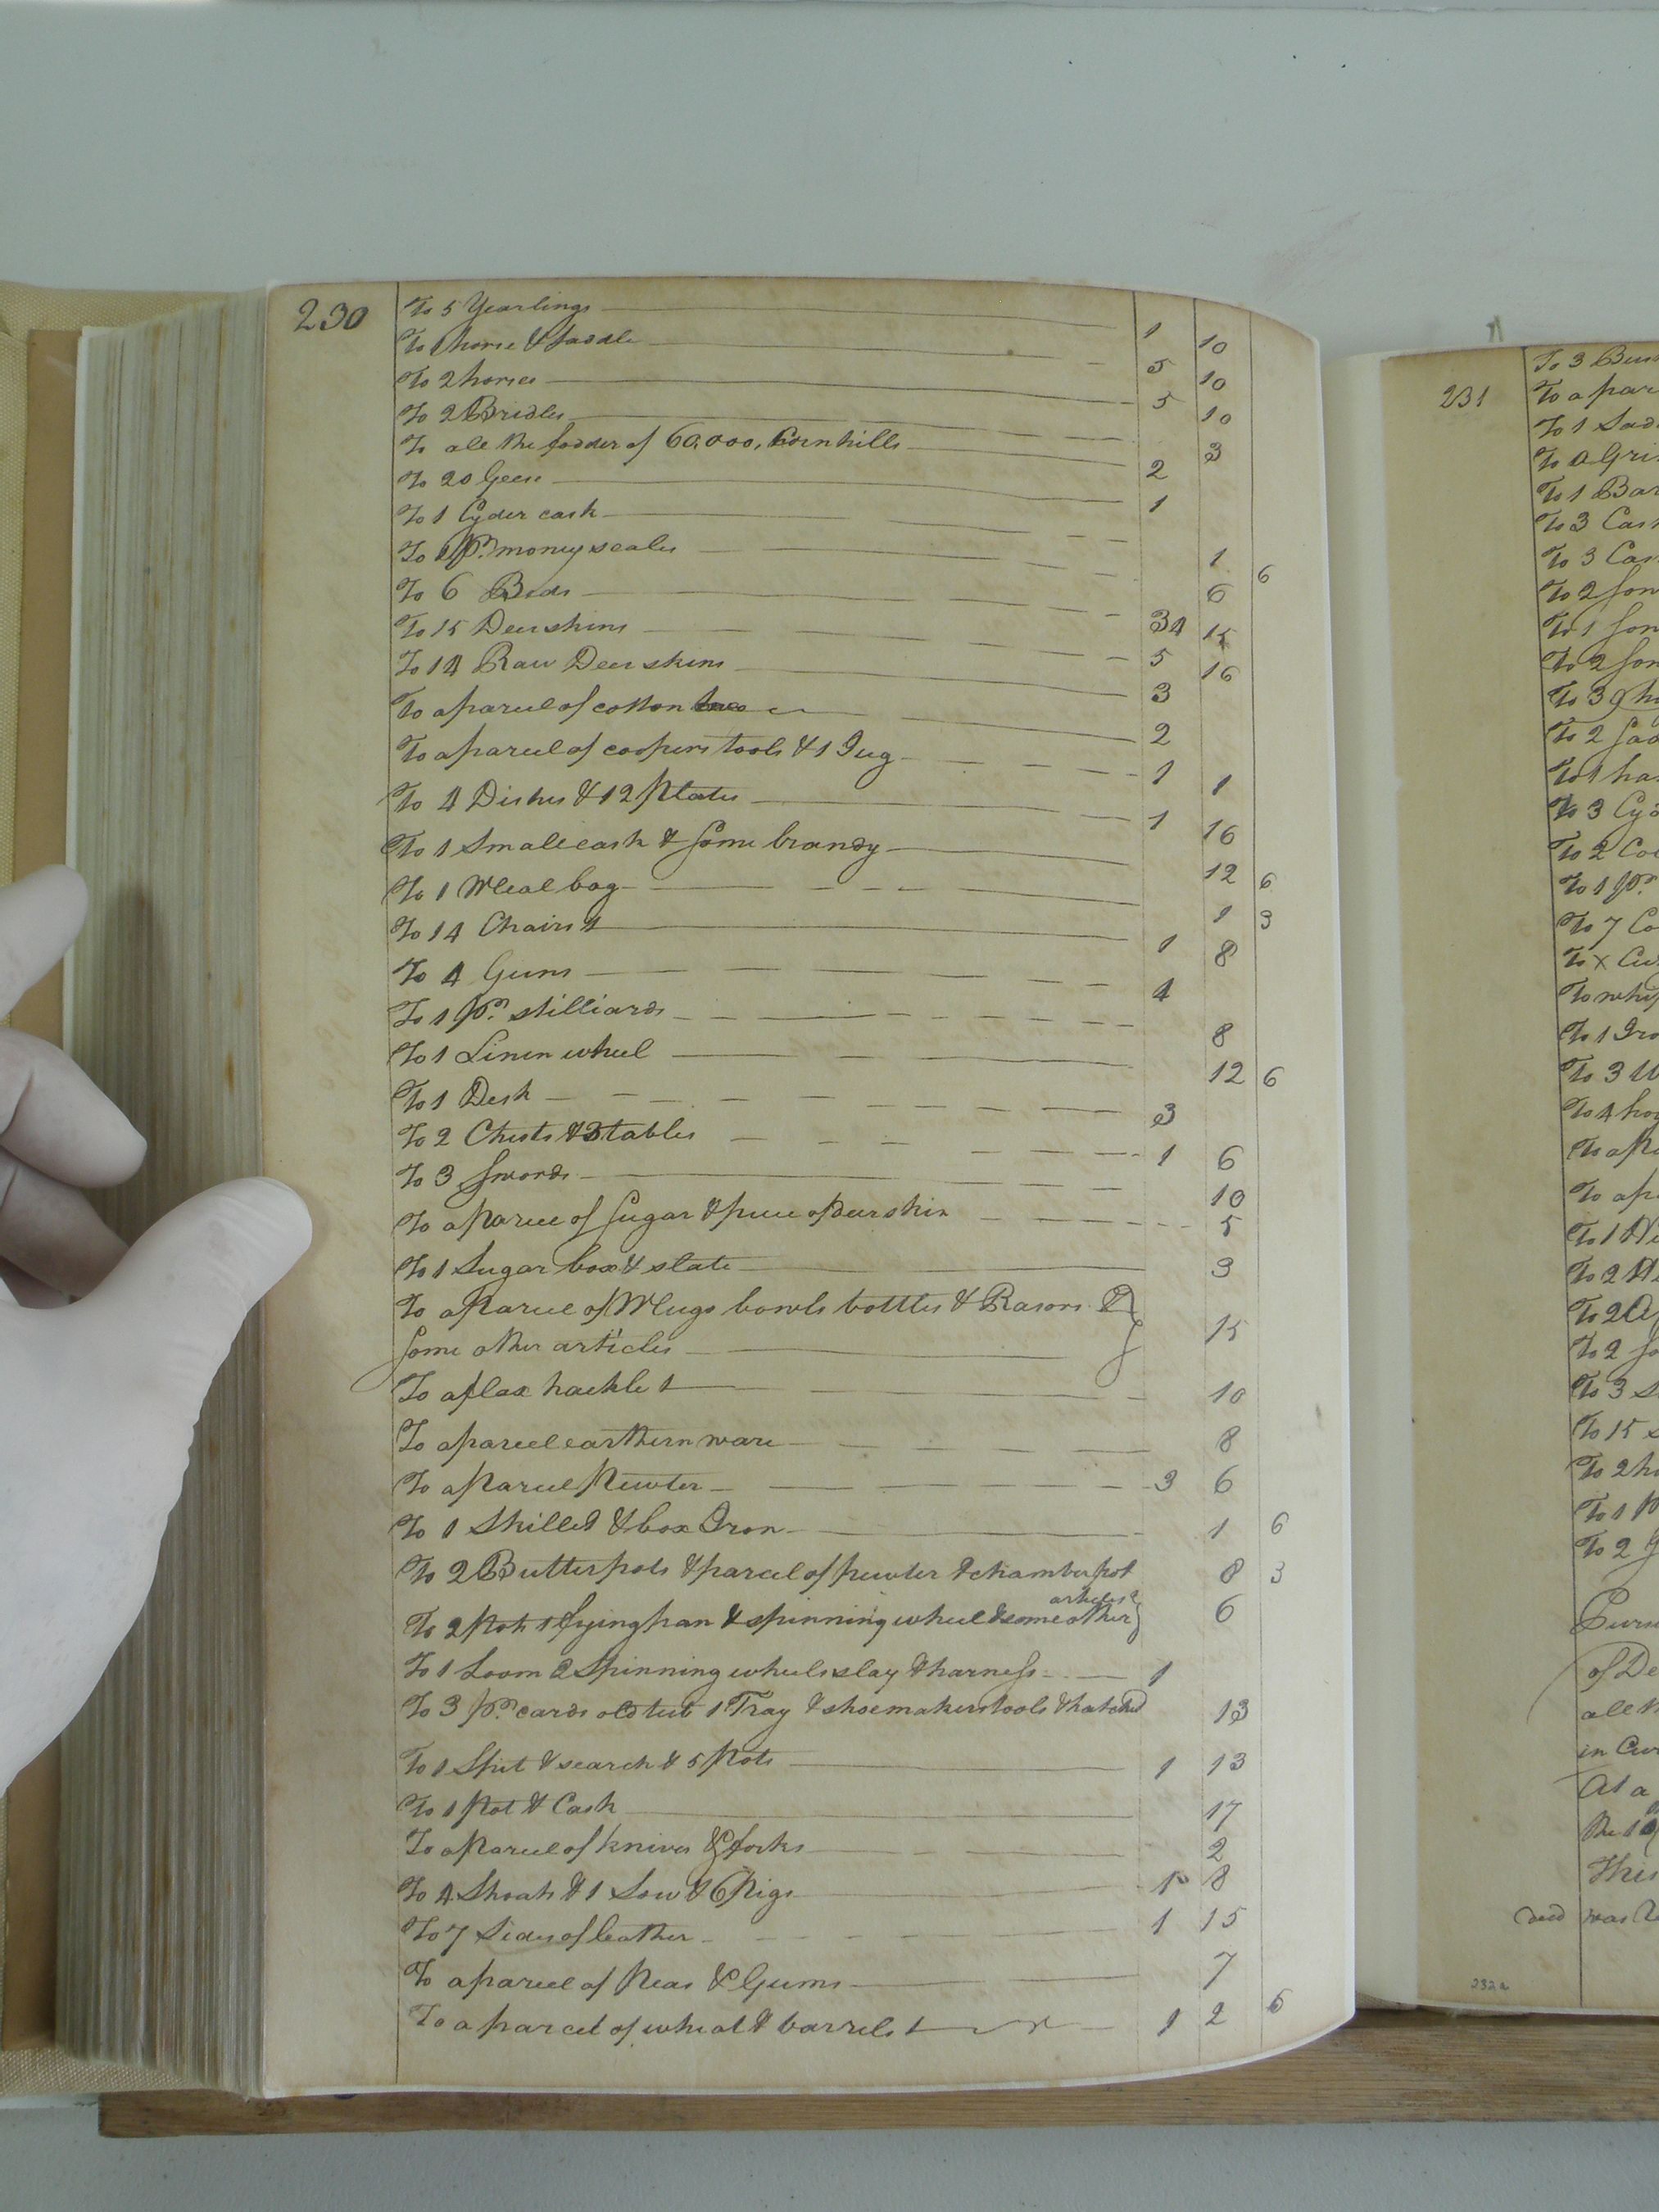 230
To 5 Yearlings 1 10
To 1 horse & Saddle 5 10
To 2 horses 5 10
To 2 Bridles 3
To all the fodder of 60,000, Cornhills 2
To 20 Geese 1
To 1 Cyder cask 1
To 1 pr. money scales 6 6
To 6 Beds 34 15
To 15 Deerskins 5 16
To 14 Raw Deer skins 3
To a parcel of cotton 2
To a parcel of coopers tools & 1 Jug 1 1
To 4 Dishes & 12 Plates 1 16
To 1 Small cask & Some brandy 12 6
To 1 Meal bag 1 3
To 14 Chairs 1 8
To 4 Guns 4
To 1 pr. stilliards 8
To 1 Linen wheel 12 6
To 1 Desk 3
To 2 Chests & 3 tables 1 6
To 3 Swords 10
To a Parcel of Sugar & piece of Deerskin 5
To 1 Sugar box & slate 3
To a Parcel of Mugs bowls bottles & Rasors &
Some other articles 15
To a flax hackle 10
To a parcel earthern ware 8
To a Parcel Pewter 3 6
To 1 Skilled & box Iron 1 6
To 2 Butter pots & parcel of pewter & chamber pot 8 3
To 2 Pots 1 frying pan & spinning wheel & some other articles 6
To 1 Loom 2 Spinning wheels slay & harness 1
To 3 pr. cards old tub 1 Tray & shoemakers tools & hatched 13
To 1 Spit & search & 5 Pots 1 13
To 1 Pot & Cask 17
To a Parcel of knives & forks 2
To 4 Shoats & 1 Sow & 6 Pigs 1 8
To 7 Sides of leather 1 15
To a parcel of Peas & Gums 7
To a parcel of wheat & barrels 1 2 6
231
To 3
To a par
To 1 Sad
To a Gri
To 1 Bar
To 3 Cas
To 3 Cas
To 2 Son
To 1 Son
To 2 Son
To 3
To 2 Sad
To 1 ha
To 3 Cyd
To 2 Co
To 1 pr.
To 7 Co
To
To whip
To 1 Iro
To 3 W
To 4 hog
To a Pa
To a pa
To 1
To 2
To 2
To 2
To 3 S
To 15 s
To 2 h
To 1 P
To 2
of De
all
in Cur
At a
the 1
This
deed was
232a